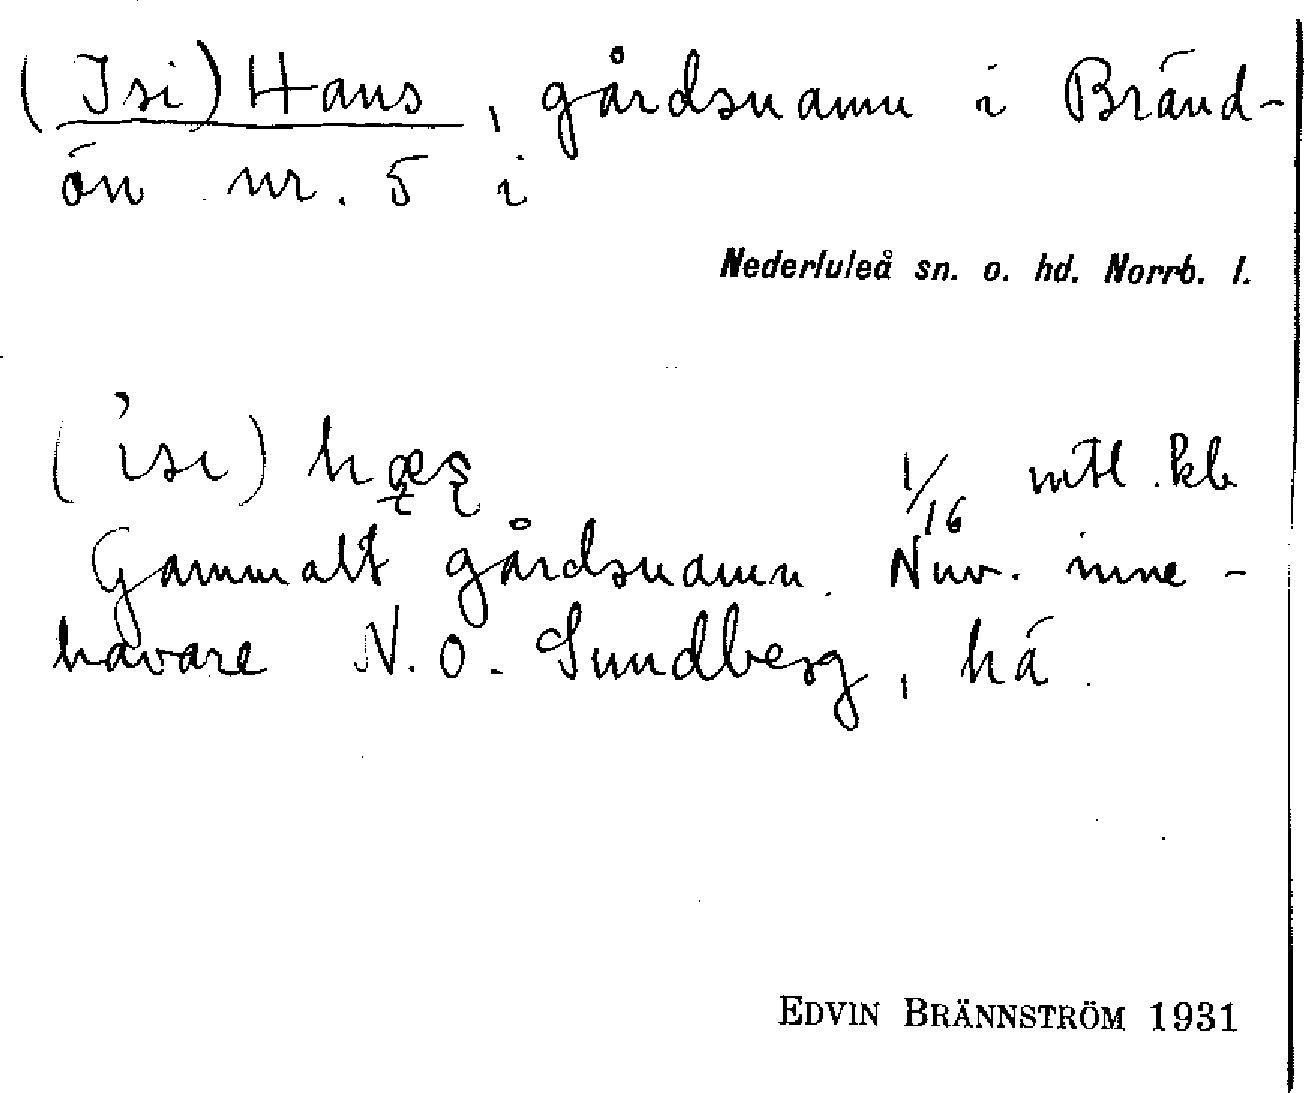 (Isi) Hans, gårdsnamn i Bränd-
ön nr. 5 i
Nederluleå sn. o. hd. Norrb. l.
('isi)
1/16 mtl. kb
Gammalt gårdsnamn. Nuv. inne-
havare N. O. Sundberg, hä.
EDVIN BRÄNNSTRÖM 1931